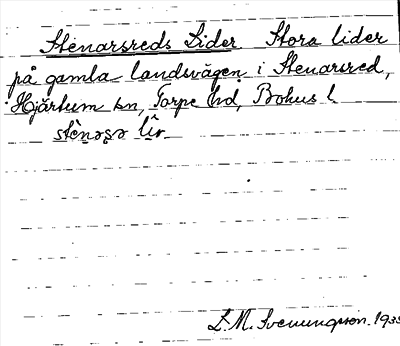 Stenarsreds Lider Stora lider
på gamla landsvägen i Stenarsred,
Hjärtum sn, Torpe hd, Bohus l.
stènəʂə lîr
L. M. Svenungsson. 193